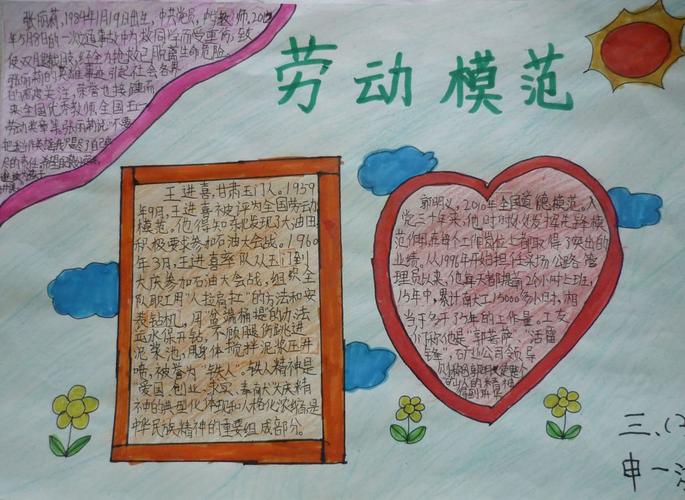 劳动模范
张丽莉,1984年1月19日出生,中共党员,
年5月8日的一次 事故中为救同学而受重伤,致
使双腿截肢,经全力抢救已脱离生命危险。
张丽莉的英雄事迹引起社会各界
的高度关注,荣誉也接踵而
来全国优秀教师全国五一
劳动奖章
王进喜,甘肃玉门人。1959
年9月,王进喜被评为全国劳动
模范。他得知东北发现了大油田,
积极要求参加石油大会战。1960
年3月,王进喜率队从玉门到
大庆参加石油大会战,组织全
队职工用“人拉肩扛”的方法和安
装钻机,用“盆端桶提”的办法
运水保开钻,不顾腿伤跳进
泥浆池,用身体搅拌泥浆压井
喷,被誉为“铁人”。铁人精神是
“爱国、创业、求实、奉献”大庆精
神的典型化体现和人格化浓缩,是
中华民族精神的重要组成部分。
郭明义,2010年全国道德模范。入
党三十年来,他时时处处发挥先锋模
范作用,在每个工作岗位上都取得了突出的
业绩,从1996年开始担任采场公路管
理员以来,他每天都提前2个小时上班,
15年中,累计献工15000多小时,相
当于多干了5年的工作量。工友
们称他是“郭菩萨”、“活雷
锋”,矿业公司领导
三、(2
申一